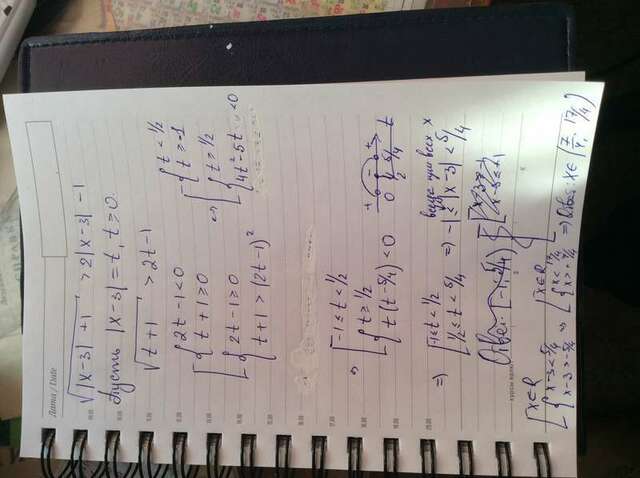 Дата / Date
√|x-3| + 1 > 2|x-3| - 1
Пусть |x-3| = t, t ≥ 0.
√t+1 > 2t-1
[ { 2t-1<0
t+1≥0
{ 2t-1≥0
t+1 > (2t-1)²
⇔ [ { t < 1/2
t ≥ -1
{ t ≥ 1/2
4t²-5t <0
⇒ [ -1 ≤ t < 1/2
{ t ≥ 1/2
t(t-5/4) < 0
+ - +
0 1/2 5/4 t
⇒ [ -1≤t < 1/2
1/2 ≤ t < 5/4
верно при всех x
⇒ -1 ≤ |x-3| < 5/4
курсы валют
[ x∈R
{ x-3<5/4
x-3>-5/4
⇒ [ x∈R
{ x< 17/4
x> 7/4
⇒ Ответ: x∈ (7/4; 17/4)